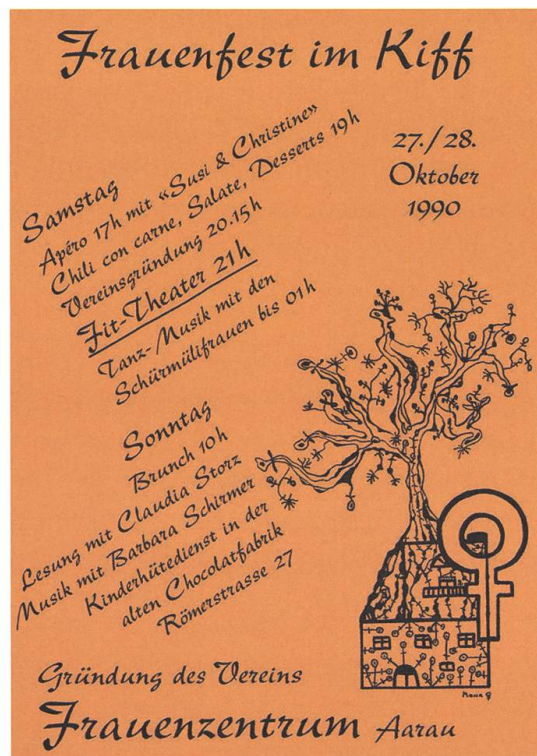 Frauenfest im Kiff
27./28.
Oktober
1990
Samstag
Apéro 17h mit «Susi & Christine»
Chili con carne, Salate, Desserts 19h
Vereinsgründung 20.15h
Fit-Theater 21h
Tanz-Musik mit den
Schürmülifrauen bis 01h
Sonntag
Brunch 10h
Lesung mit Claudia Storz
Musik mit Barbara Schirmer
Kinderhütedienst in der
alten Chocolatfabrik
Römerstrasse 27
Gründung des Vereins
Frauenzentrum Aarau